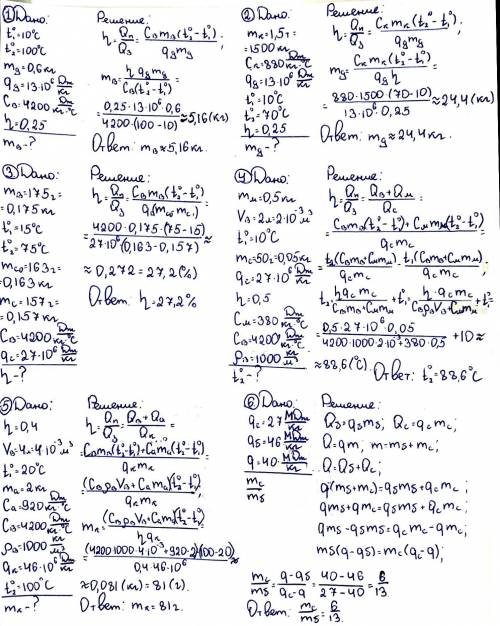 ① Дано:
t₁°=10°C
t₂°=100°C
m_д=0,6кг
q_д=13·10⁶ Дж/кг
C_в=4200 Дж/кг·°C
η=0,25
m_в-?
Решение:
η=Qп/Qз=C_в m_в(t₂°-t₁°)/q_д m_д;
m_в=η q_д m_д/C_в(t₂°-t₁°)=
=0,25·13·10⁶·0,6/4200·(100-10)≈5,16(кг)
Ответ: m_в≈5,16кг.
② Дано:
m_к=1,5т=
=1500кг
C_к=880 Дж/кг·°C
q_д=13·10⁶ Дж/кг
t₁°=10°C
t₂°=70°C
η=0,25
m_д-?
Решение:
η=Qп/Qз=C_к m_к(t₂°-t₁°)/q_д m_д;
m_д=C_к m_к(t₂°-t₁°)/q_д η=
=880·1500·(70-10)/13·10⁶·0,25≈24,4(кг)
Ответ: m_д≈24,4кг.
③ Дано:
m_в=175г=
=0,175кг
t₁°=15°C
t₂°=75°C
m_с₀=163г=
=0,163кг
m_с₁=157г=
=0,157кг
C_в=4200 Дж/кг·°C
q_с=27·10⁶ Дж/кг
η-?
Решение:
η=Qп/Qз=C_в m_в(t₂°-t₁°)/q_с(m_с₀-m_с₁)=
=4200·0,175·(75-15)/27·10⁶(0,163-0,157)≈
≈0,272=27,2(%)
Ответ: η=27,2%
④ Дано:
m_м=0,5кг
V_в=2л=2·10⁻³м³
t₁°=10°C
m_с=50г=0,05кг
q_с=27·10⁶ Дж/кг
η=0,5
C_м=380 Дж/кг·°C
C_в=4200 Дж/кг·°C
ρ_в=1000 кг/м³
t₂°-?
Решение:
η=Qп/Qз=Q_в+Q_м/Q_с=
=C_в m_в(t₂°-t₁°)+C_м m_м(t₂°-t₁°)/q_с m_с=
=t₂(C_в m_в+C_м m_м)/q_с m_с-t₁(C_в m_в+C_м m_м)/q_с m_с;
t₂°=η q_с m_с/C_в m_в+C_м m_м+t₁°=η·q_с m_с/C_в ρ_в V_в+C_м m_м+t₁°=
=0,5·27·10⁶·0,05/4200·1000·2·10⁻³+380·0,5+10≈
≈88,6(°C).
Ответ: t₂°=88,6°C
⑤ Дано:
η=0,4
V_в=4л=4·10⁻³м³
t₁°=20°C
m_а=2кг
C_а=920 Дж/кг·°C
C_в=4200 Дж/кг·°C
ρ_в=1000 кг/м³
q_к=46·10⁶ Дж/кг
t₂°=100°C
m_к-?
Решение:
η=Qп/Qз=Q_в+Q_а/Q_к=
=C_в m_в(t₂°-t₁°)+C_а m_а(t₂°-t₁°)/q_к m_к=
=(C_в ρ_в V_в+C_а m_а)(t₂°-t₁°)/q_к m_к;
m_к=(C_в ρ_в V_в+C_а m_а)(t₂°-t₁°)/η q_к=
=(4200·1000·4·10⁻³+920·2)·(100-20)/0,4·46·10⁶≈
≈0,081(кг)=81(г).
Ответ: m_к=81г.
⑥ Дано:
q_с=27 МДж/кг
q_б=46 МДж/кг
q=40 МДж/кг
m_с/m_б
Решение:
Q_б=q_б m_б; Q_с=q_с m_с;
Q=qm, m=m_б+m_с;
Q=Q_б+Q_с;
q(m_б+m_с)=q_б m_б+q_с m_с;
qm_б+qm_с=q_б m_б+q_с m_с;
qm_б-q_б m_б=q_с m_с-qm_с;
m_б(q-q_б)=m_с(q_с-q);
m_с/m_б=q-q_б/q_с-q=40-46/27-40=6/13.
Ответ: m_с/m_б=6/13.